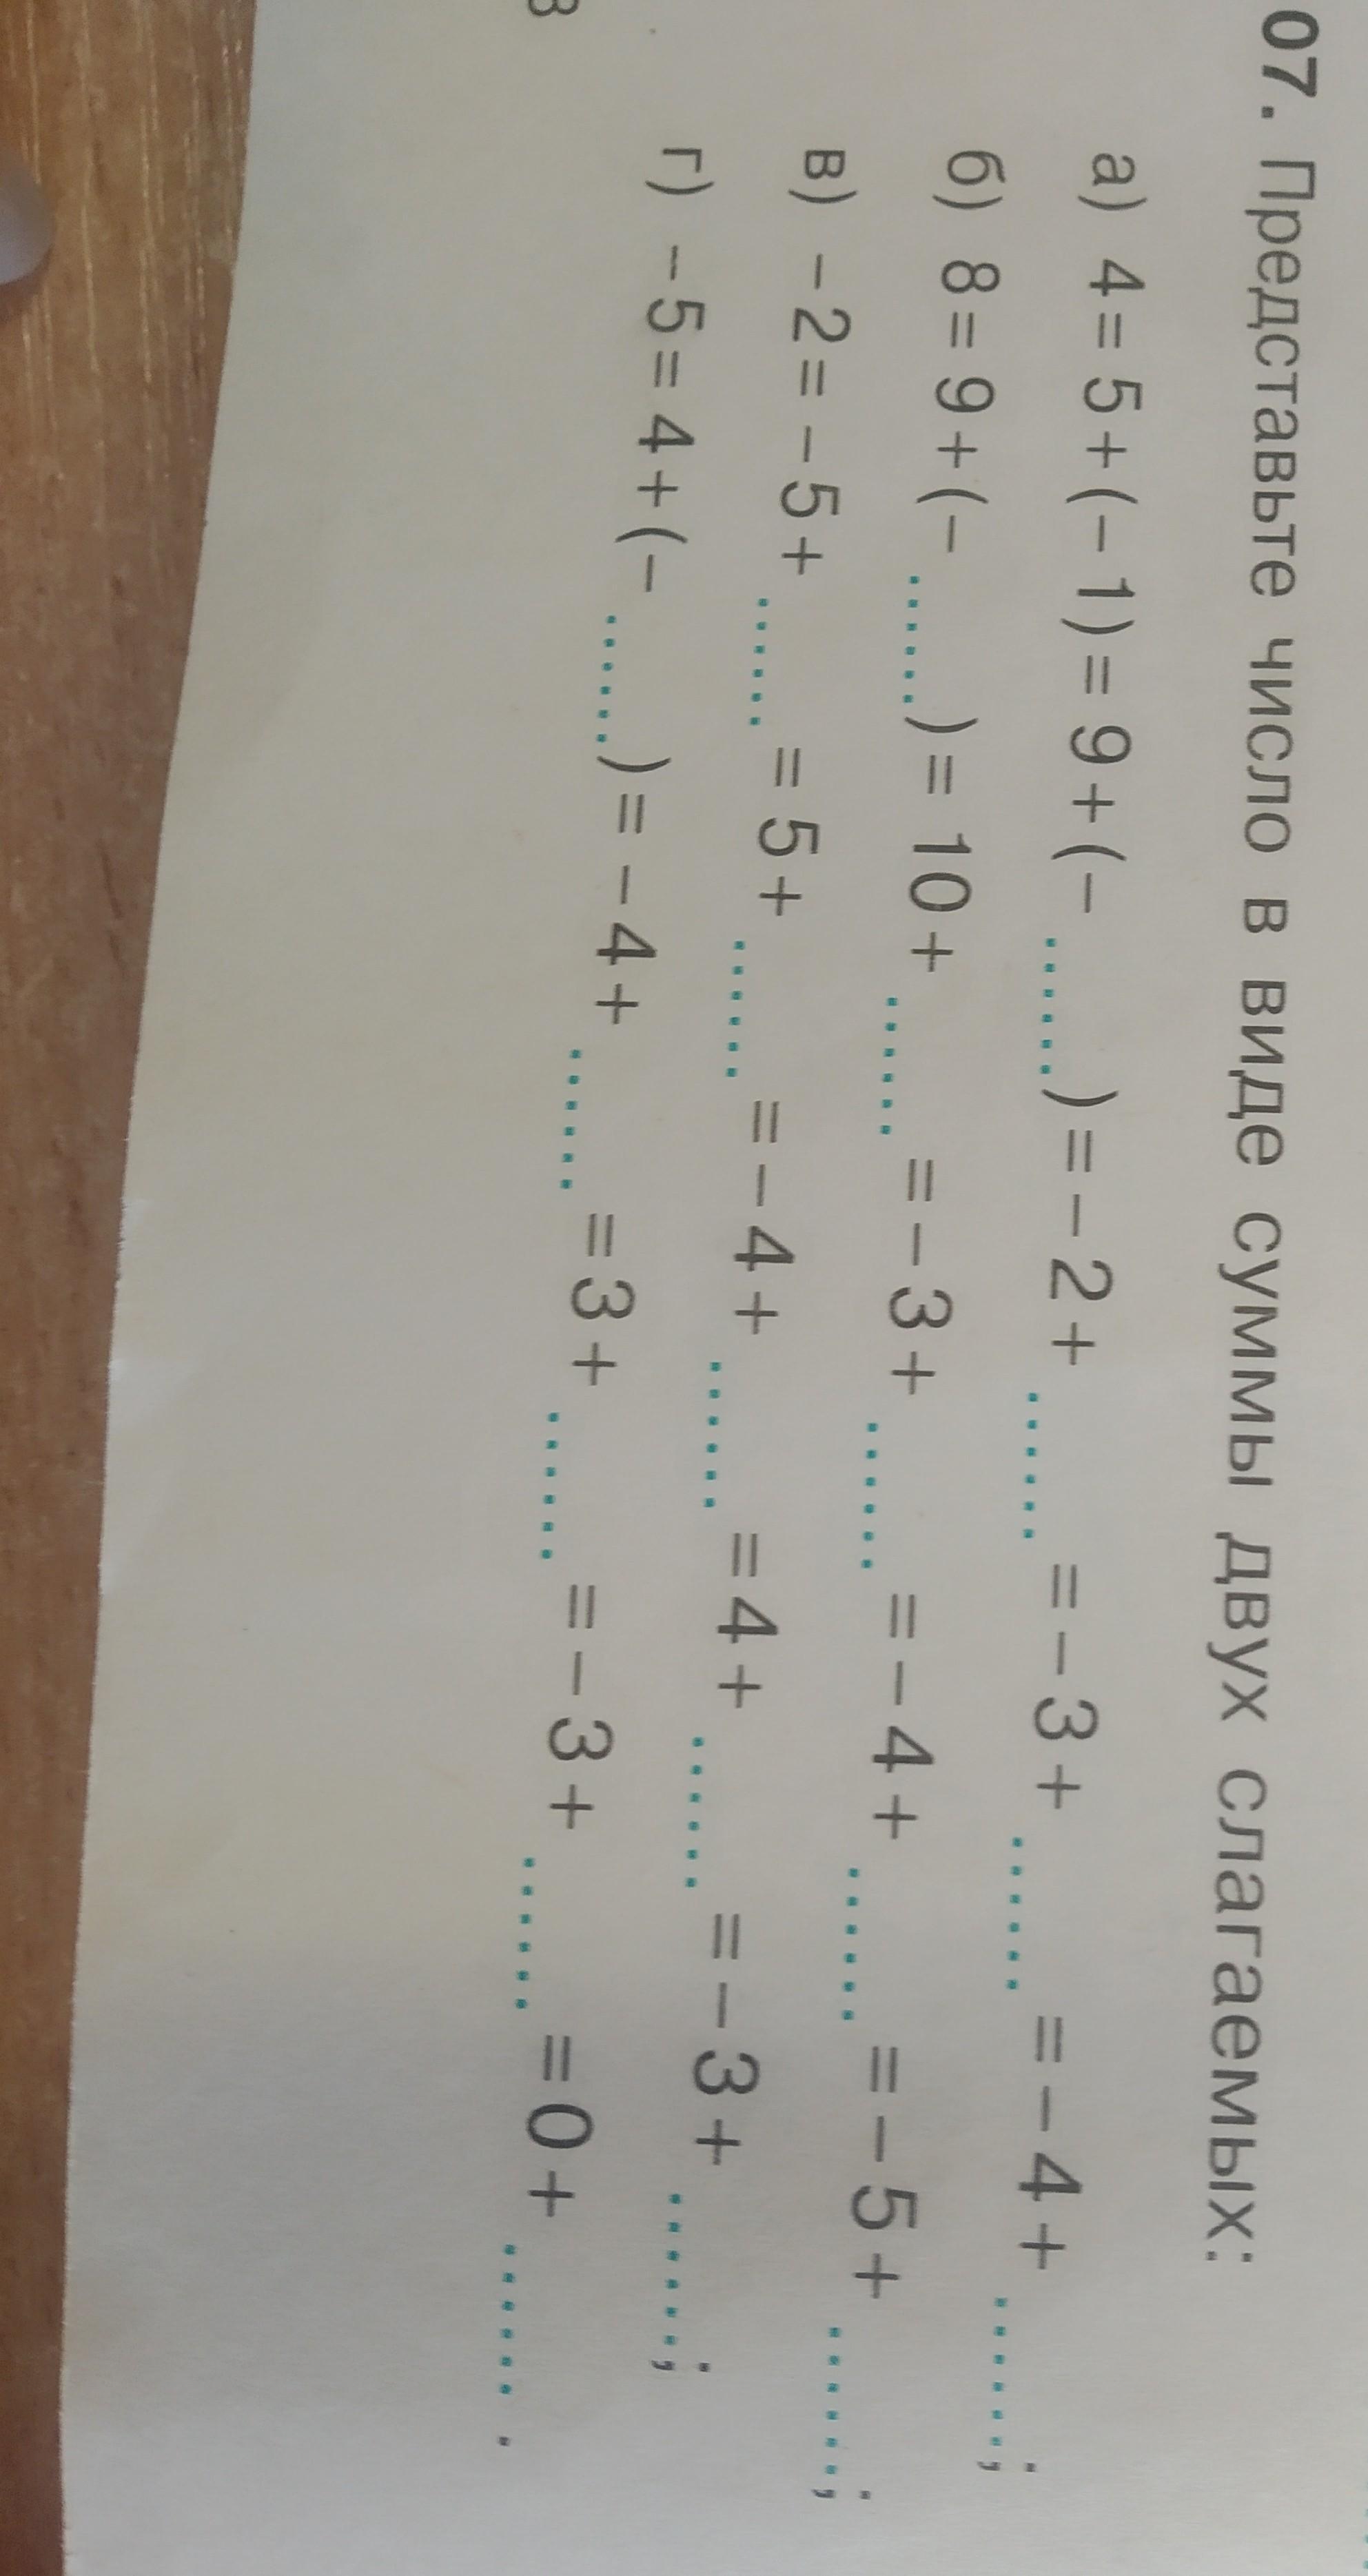 07. Представьте число в виде суммы двух слагаемых:
а) 4 = 5 + (– 1) = 9 + (– ......) = – 2 + ...... = – 3 + ...... = – 4 + ......;
б) 8 = 9 + (– ......) = 10 + ...... = – 3 + ...... = – 4 + ...... = – 5 + ......;
в) – 2 = – 5 + ...... = 5 + ...... = – 4 + ...... = 4 + ...... = – 3 + ......;
г) – 5 = 4 + (– ......) = – 4 + ...... = 3 + ...... = – 3 + ...... = 0 + ...... .